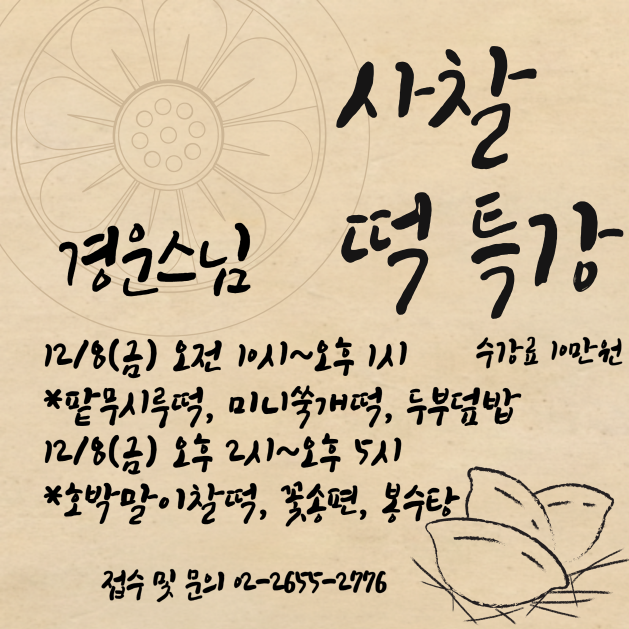 사찰
떡 특강
경운스님
12/8(금) 오전 10시~오후 1시
수강료 10만원
*팥무시루떡, 미니쑥개떡, 두부덮밥
12/8(금) 오후 2시~오후 5시
*호박말이찰떡, 꽃송편, 봉수탕
접수 및 문의 02-2655-2776